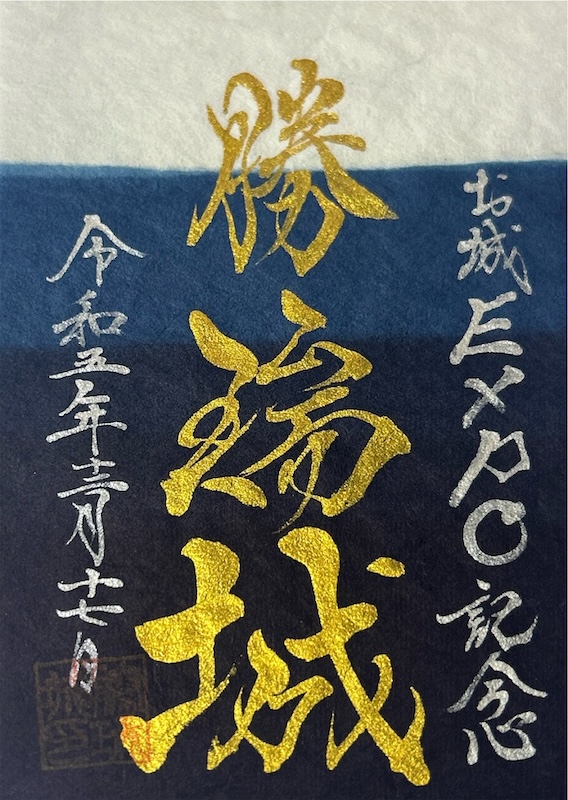 お城EXPO記念
勝瑞城
令和五年十二月十七日